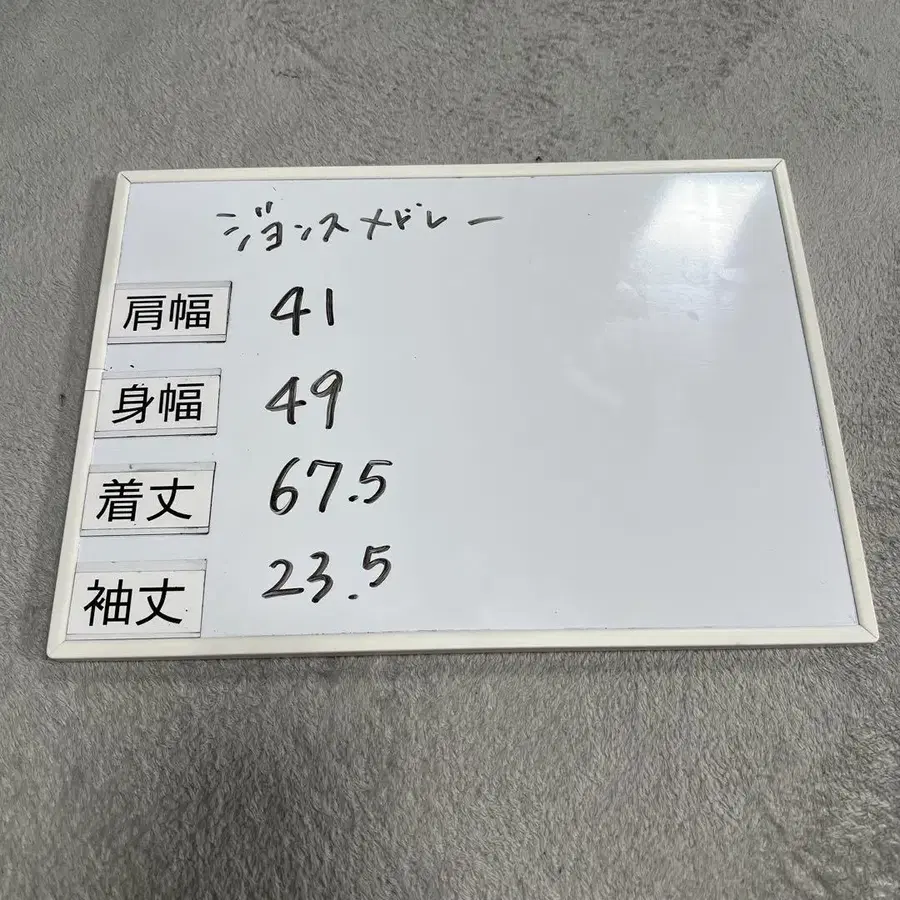 ジョンスメドレー
肩幅 41
身幅 49
着丈 67.5
袖丈 23.5